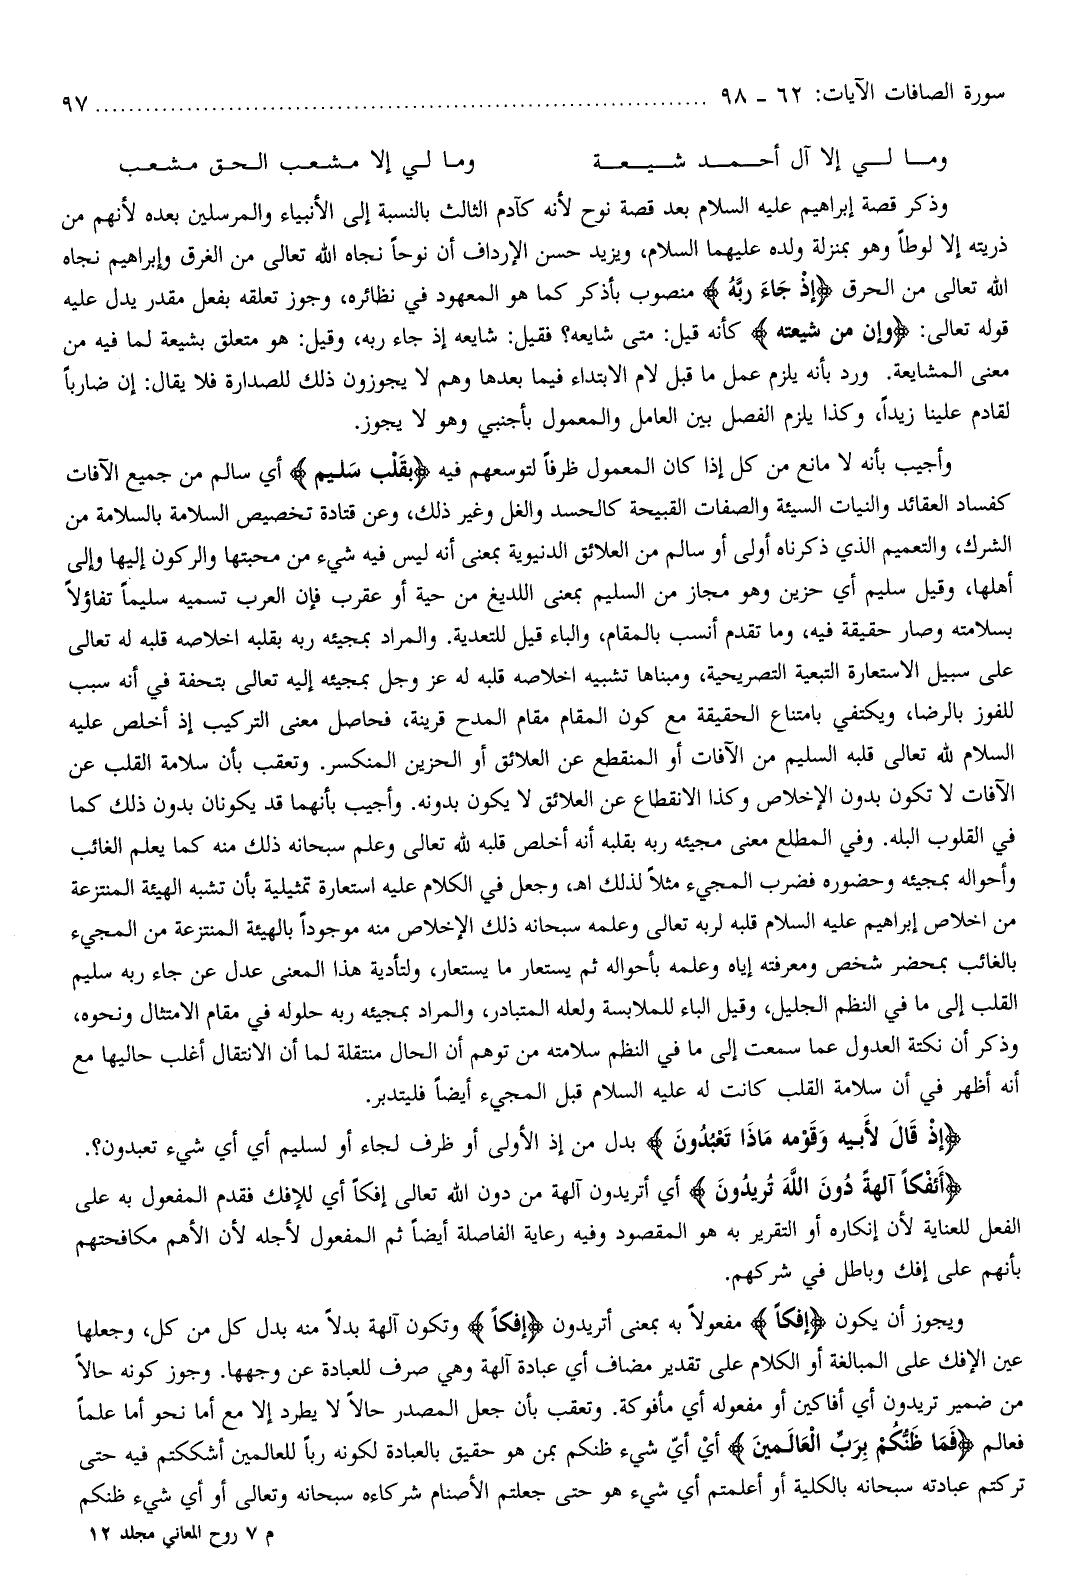 سورة الصافات الآيات: ٦٢ ـ ٩٨ ........................................................................ ٩٧
ومـــا لـــي إلا آل أحـــمـــد شـــيـــعـــة ومـا لـي إلا مـشـعـب الـحـق مـشـعـب
وذكر قصة إبراهيم عليه السلام بعد قصة نوح لأنه كآدم الثالث بالنسبة إلى الأنبياء والمرسلين بعده لأنهم من
ذريته إلا لوطاً وهو بمنزلة ولده عليهما السلام، ويزيد حسن الإرداف أن نوحاً نجاه الله تعالى من الغرق وإبراهيم نجاه
الله تعالى من الحرق ﴿إِذْ جَاءَ رَبَّهُ﴾ منصوب بأذكر كما هو المعهود في نظائره، وجوز تعلقه بفعل مقدر يدل عليه
قوله تعالى: ﴿وإن من شيعته﴾ كأنه قيل: متى شايعه؟ فقيل: شايعه إذ جاء ربه، وقيل: هو متعلق بشيعة لما فيه من
معنى المشايعة. ورد بأنه يلزم عمل ما قبل لام الابتداء فيما بعدها وهم لا يجوزون ذلك للصدارة فلا يقال: إن ضارباً
لقادم علينا زيداً، وكذا يلزم الفصل بين العامل والمعمول بأجنبي وهو لا يجوز.
وأجيب بأنه لا مانع من كل إذا كان المعمول ظرفاً لتوسعهم فيه ﴿بقَلْب سَليم﴾ أي سالم من جميع الآفات
كفساد العقائد والنيات السيئة والصفات القبيحة كالحسد والغل وغير ذلك، وعن قتادة تخصيص السلامة بالسلامة من
الشرك، والتعميم الذي ذكرناه أولى أو سالم من العلائق الدنيوية بمعنى أنه ليس فيه شيء من محبتها والركون إليها وإلى
أهلها، وقيل سليم أي حزين وهو مجاز من السليم بمعنى اللديغ من حية أو عقرب فإن العرب تسميه سليماً تفاؤلاً
بسلامته وصار حقيقة فيه، وما تقدم أنسب بالمقام، والباء قيل للتعدية. والمراد بمجيئه ربه بقلبه اخلاصه قلبه له تعالى
على سبيل الاستعارة التبعية التصريحية، ومبناها تشبيه اخلاصه قلبه له عز وجل بمجيئه إليه تعالى بتحفة في أنه سبب
للفوز بالرضا، ويكتفي بامتناع الحقيقة مع كون المقام مقام المدح قرينة، فحاصل معنى التركيب إذ أخلص عليه
السلام لله تعالى قلبه السليم من الآفات أو المنقطع عن العلائق أو الحزين المنكسر. وتعقب بأن سلامة القلب عن
الآفات لا تكون بدون الإخلاص وكذا الانقطاع عن العلائق لا يكون بدونه. وأجيب بأنهما قد يكونان بدون ذلك كما
في القلوب البله. وفي المطلع معنى مجيئه ربه بقلبه أنه أخلص قلبه لله تعالى وعلم سبحانه ذلك منه كما يعلم الغائب
وأحواله بمجيئه وحضوره فضرب المجيء مثلاً لذلك اهـ، وجعل في الكلام عليه استعارة تمثيلية بأن تشبه الهيئة المنتزعة
من اخلاص إبراهيم عليه السلام قلبه لربه تعالى وعلمه سبحانه ذلك الإخلاص منه موجوداً بالهيئة المنتزعة من المجيء
بالغائب بمحضر شخص ومعرفته إياه وعلمه بأحواله ثم يستعار ما يستعار، ولتأدية هذا المعنى عدل عن جاء ربه سليم
القلب إلى ما في النظم الجليل، وقيل الباء للملابسة ولعله المتبادر، والمراد بمجيئه ربه حلوله في مقام الامتثال ونحوه،
وذكر أن نكتة العدول عما سمعت إلى ما في النظم سلامته من توهم أن الحال منتقلة لما أن الانتقال أغلب حاليها مع
أنه أظهر في أن سلامة القلب كانت له عليه السلام قبل المجيء أيضاً فليتدبر.
﴿إِذْ قَالَ لأَبيه وَقَوْمه مَاذَا تَعْبُدُونَ﴾ بدل من إذ الأولى أو ظرف لجاء أو لسليم أي أي شيء تعبدون؟.
﴿أَئفْكاً آلهةً دُونَ اللَّهَ تُريدُونَ﴾ أي أتريدون آلهة من دون الله تعالى إفكاً أي للإفك فقدم المفعول به على
الفعل للعناية لأن إنكاره أو التقرير به هو المقصود وفيه رعاية الفاصلة أيضاً ثم المفعول لأجله لأن الأهم مكافحتهم
بأنهم على إفك وباطل في شركهم.
ويجوز أن يكون ﴿إفكاً﴾ مفعولاً به بمعنى أتريدون ﴿إفكاً﴾ وتكون آلهة بدلاً منه بدل كل من كل، وجعلها
عين الإفك على المبالغة أو الكلام على تقدير مضاف أي عبادة آلهة وهي صرف للعبادة عن وجهها. وجوز كونه حالاً
من ضمير تريدون أي أفاكين أو مفعوله أي مأفوكة. وتعقب بأن جعل المصدر حالاً لا يطرد إلا مع أما نحو أما علماً
فعالم ﴿فَمَا ظَنُّكُمْ بِرَبِّ الْعَالَمينَ﴾ أيْ أيّ شيء ظنكم بمن هو حقيق بالعبادة لكونه رباً للعالمين أشككتم فيه حتى
تركتم عبادته سبحانه بالكلية أو أعلمتم أي شيء هو حتى جعلتم الأصنام شركاءه سبحانه وتعالى أو أي شيء ظنكم
م ٧ روح المعاني مجلد ١٢